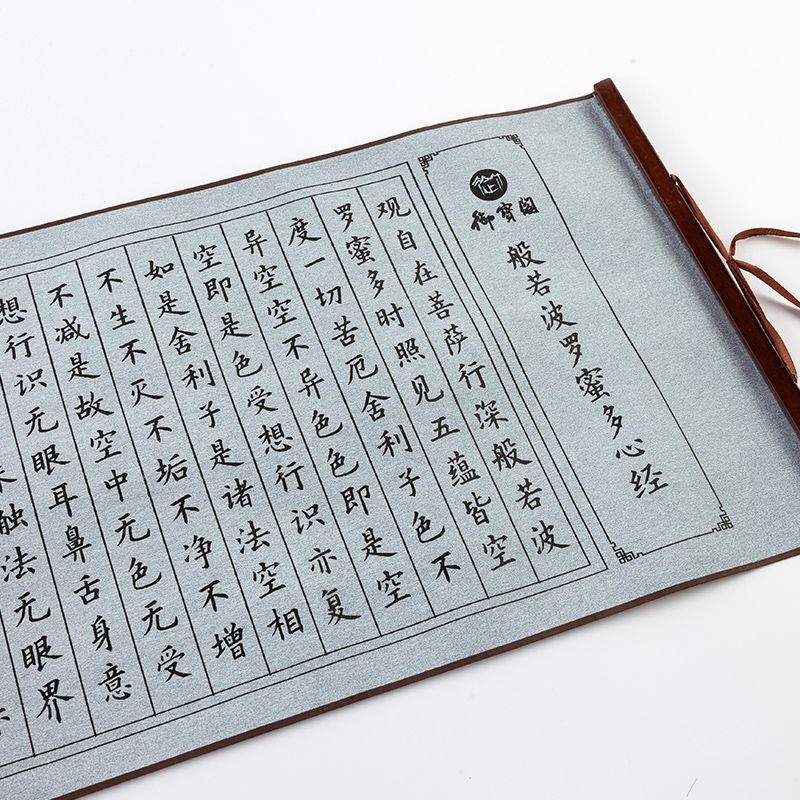 御寳閣
般若波罗蜜多心经
观自在菩萨行深般若波
罗蜜多时照见五蕴皆空
度一切苦厄舍利子色不
异空空不异色色即是空
空即是色受想行识亦复
如是舍利子是诸法空相
不生不灭不垢不净不增
不减是故空中无色无受
想行识无眼耳鼻舌身意
触法无眼界